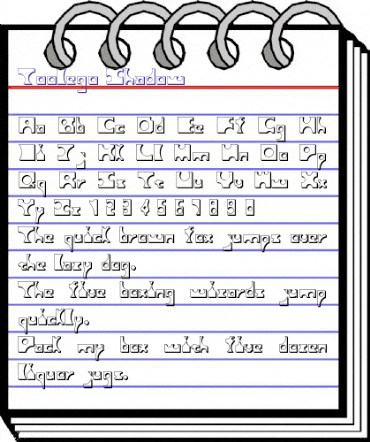 Yoolega Shadow
Aa Bb Cc Dd Ee Ff Gg Hh
Ii Jj Kk Ll Mm Nn Oo Pp
Qq Rr Ss Tt Uu Vv Ww Xx
Yy Zz 1 2 3 4 5 6 7 8 9 0
The quick brown fox jumps over
the lazy dog.
The five boxing wizards jump
quickly.
Pack my box with five dozen
liquor jugs.